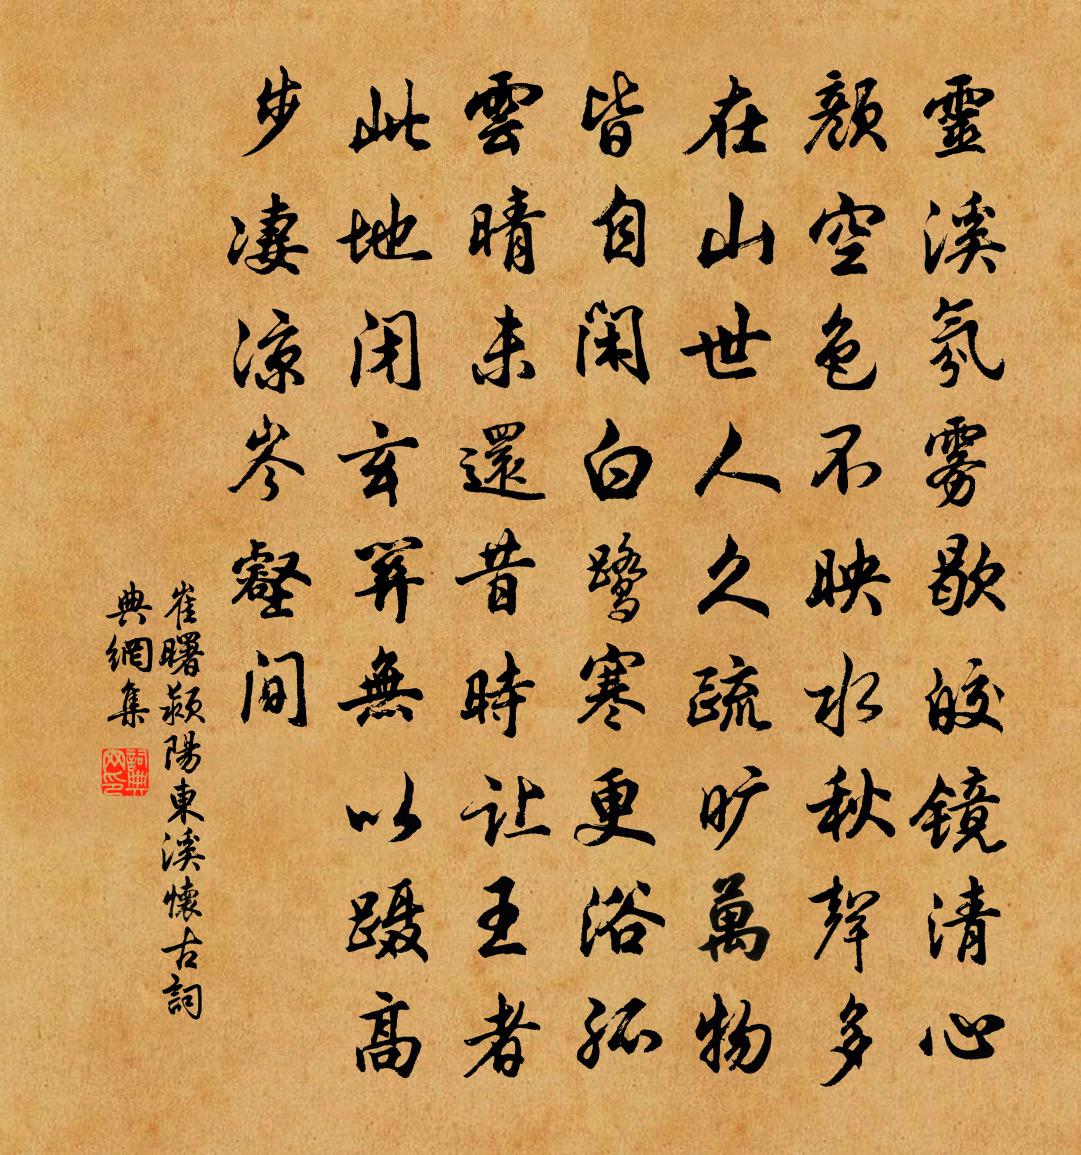 靈溪氛雾歇皎镜清心
顔空色不映水秋聲多
在山世人久疏旷萬物
皆自閑白鷺寒更浴孤
雲晴未還昔時让王者
此地闭玄關無以蹑高
步凄凉岑壑間
崔曙颍陽東溪懷古詞
典網集
詞典网印